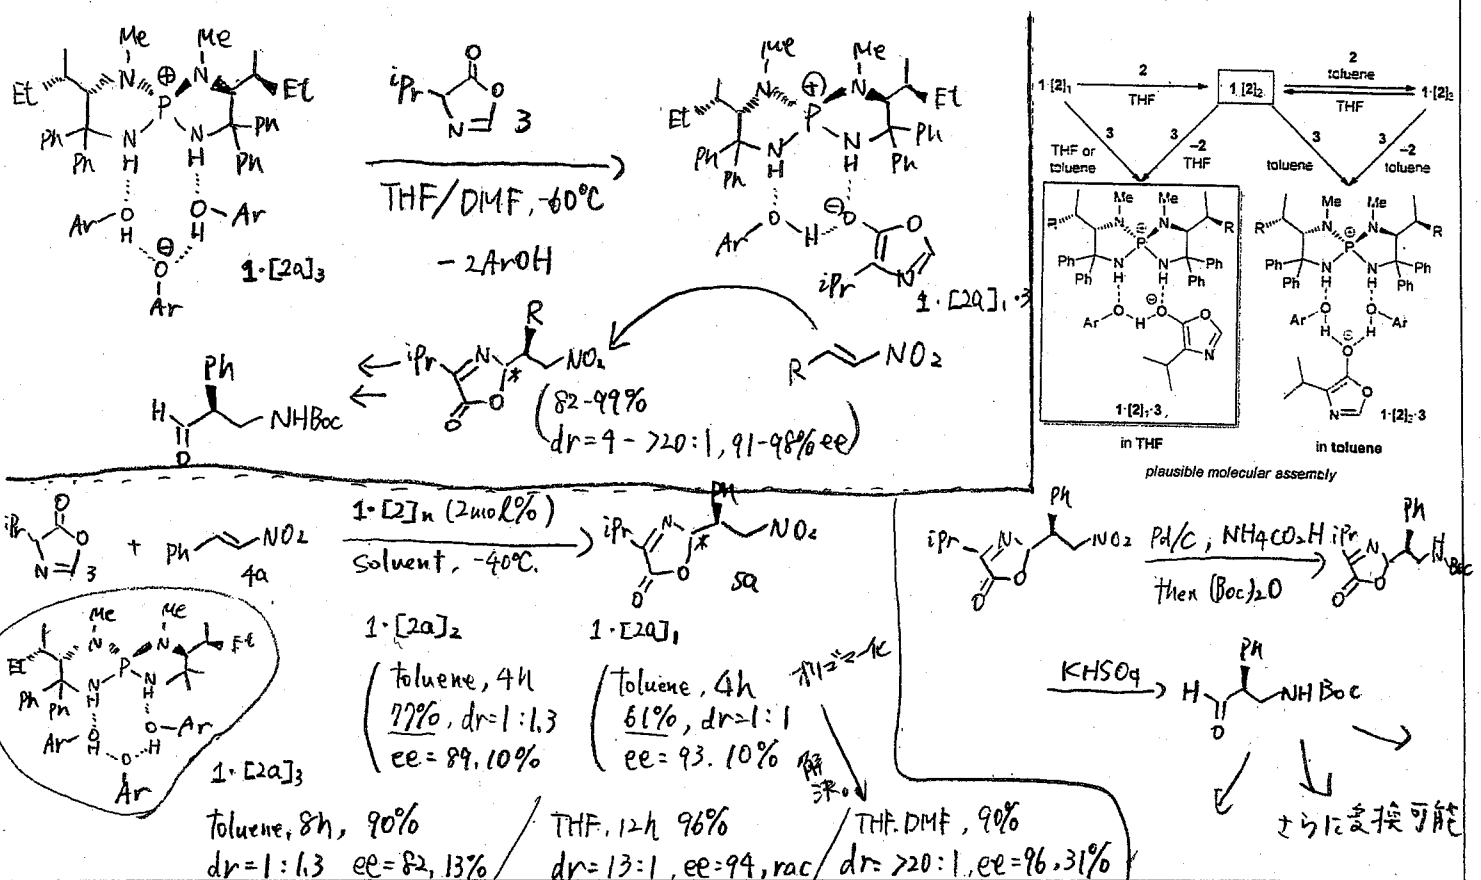 Me
Me
N
⊕
N
P
Et
Et
Ph
Ph
Ph
Ph
N
H
N
H
Ar
O
H
O
H
Ar
⊖
O
Ar
1·[2a]₃
O
iPr
O
N
3
THF/DMF, -60°C
- 2ArOH
Me
Me
N
⊕
N
P
Et
Et
Ph
Ph
Ph
Ph
N
H
N
H
⊖
O
O
Ar
H
O
iPr
N
1·[2a]₁·3
R
NO₂
R
iPr
N
NO₂
*
O
O
(82-99%
dr=9 - >20:1, 91-98% ee)
Ph
H
NHBoc
O
1·[2]₁
2
THF
1·[2]₂
2
toluene
THF
1·[2]₃
3
THF or
toluene
3
−2
THF
3
toluene
3
−2
toluene
Me
Me
N
N
⊕
P
R
R
Ph
Ph
Ph
Ph
N
H
N
H
⊖
Ar
O
H
O
O
N
1·[2]₁·3
in THF
Me
Me
N
N
⊕
P
R
R
Ph
Ph
Ph
Ph
N
H
N
H
Ar
O
H
O
H
Ar
⊖
O
O
N
1·[2]₂·3
in toluene
plausible molecular assembly
O
iPr
O
N
3
+
Ph
NO₂
4a
1·[2]n (2mol%)
solvent, -40°C.
Ph
iPr
N
*
NO₂
O
O
5a
Me
Me
N
N
P
Et
Et
Ph
Ph
N
H
N
H
Ar
O
H
O
H
Ar
O
Ar
1·[2a]₃
toluene, 8h, 90%
dr=1:1.3 ee=82, 13%
1·[2a]₂
(toluene, 4h
77%, dr=1:1.3
ee=89, 10%
1·[2a]₁
(toluene, 4h
61%, dr=1:1
ee=93, 10%
THF, 12h 96%
dr=13:1, ee=94, rac
THF, DMF, 90%
dr= >20:1, ee=96, 31%
Ph
iPr
N
NO₂
O
O
Pd/C, NH₄CO₂H
then (Boc)₂O
iPr
Ph
N
H
N
Boc
O
O
KHSO₄
Ph
H
NHBoc
O
さらに変換可能